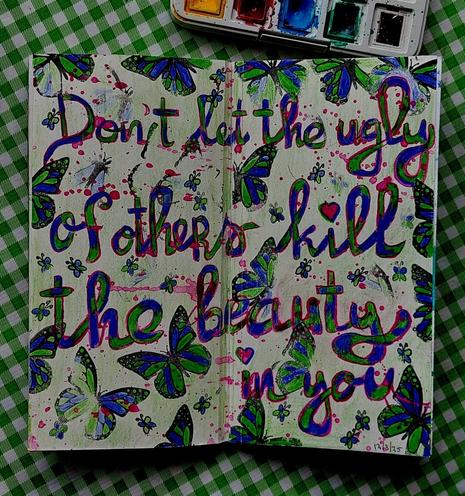 Don't let the ugly
of others kill
the beauty
in you
12/3/25